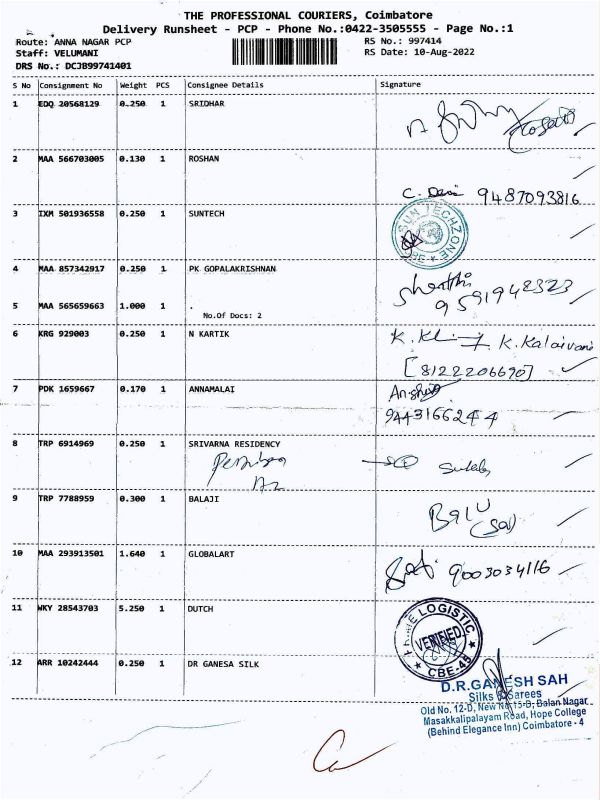 THE PROFESSIONAL COURIERS, Coimbatore
Delivery Runsheet - PCP - Phone No.:0422-3505555 - Page No.:1
Route: ANNA NAGAR PCP
RS No.: 997414
Staff: VELUMANI
RS Date: 10-Aug-2022
DRS No.: DCJB99741401
S No Consignment No Weight PCS Consignee Details Signature
1 EDQ 20568129 0.250 1 SRIDHAR
2 MAA 566703005 0.130 1 ROSHAN
C. Devi 9487093816
3 IXM 501936558 0.250 1 SUNTECH
SUN TECHZONE
CBE
4 MAA 857342917 0.250 1 PK GOPALAKRISHNAN
9591948323
5 MAA 565659663 1.000 1 .
No.Of Docs: 2
6 KRG 929003 0.250 1 N KARTIK
K. Kalaivani
[8122206690]
7 PDK 1659667 0.170 1 ANNAMALAI
9443166244
8 TRP 6914969 0.250 1 SRIVARNA RESIDENCY
9 TRP 7788959 0.300 1 BALAJI
Balu
10 MAA 293913501 1.640 1 GLOBALART
9003034116
11 WKY 28543703 5.250 1 DUTCH
LOGISTIC
VERIFIED
CBE-45
12 ARR 10242444 0.250 1 DR GANESA SILK
D.R.GANESH SAH
Silks & Sarees
Old No. 12-D, New No.15-B, Balan Nagar
Masakkalipalayam Road, Hope College
(Behind Elegance Inn) Coimbatore - 4